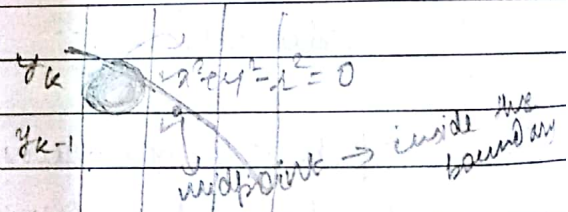 y_k x²+y²-r²=0
y_{k-1}
midpoint → inside the
boundary